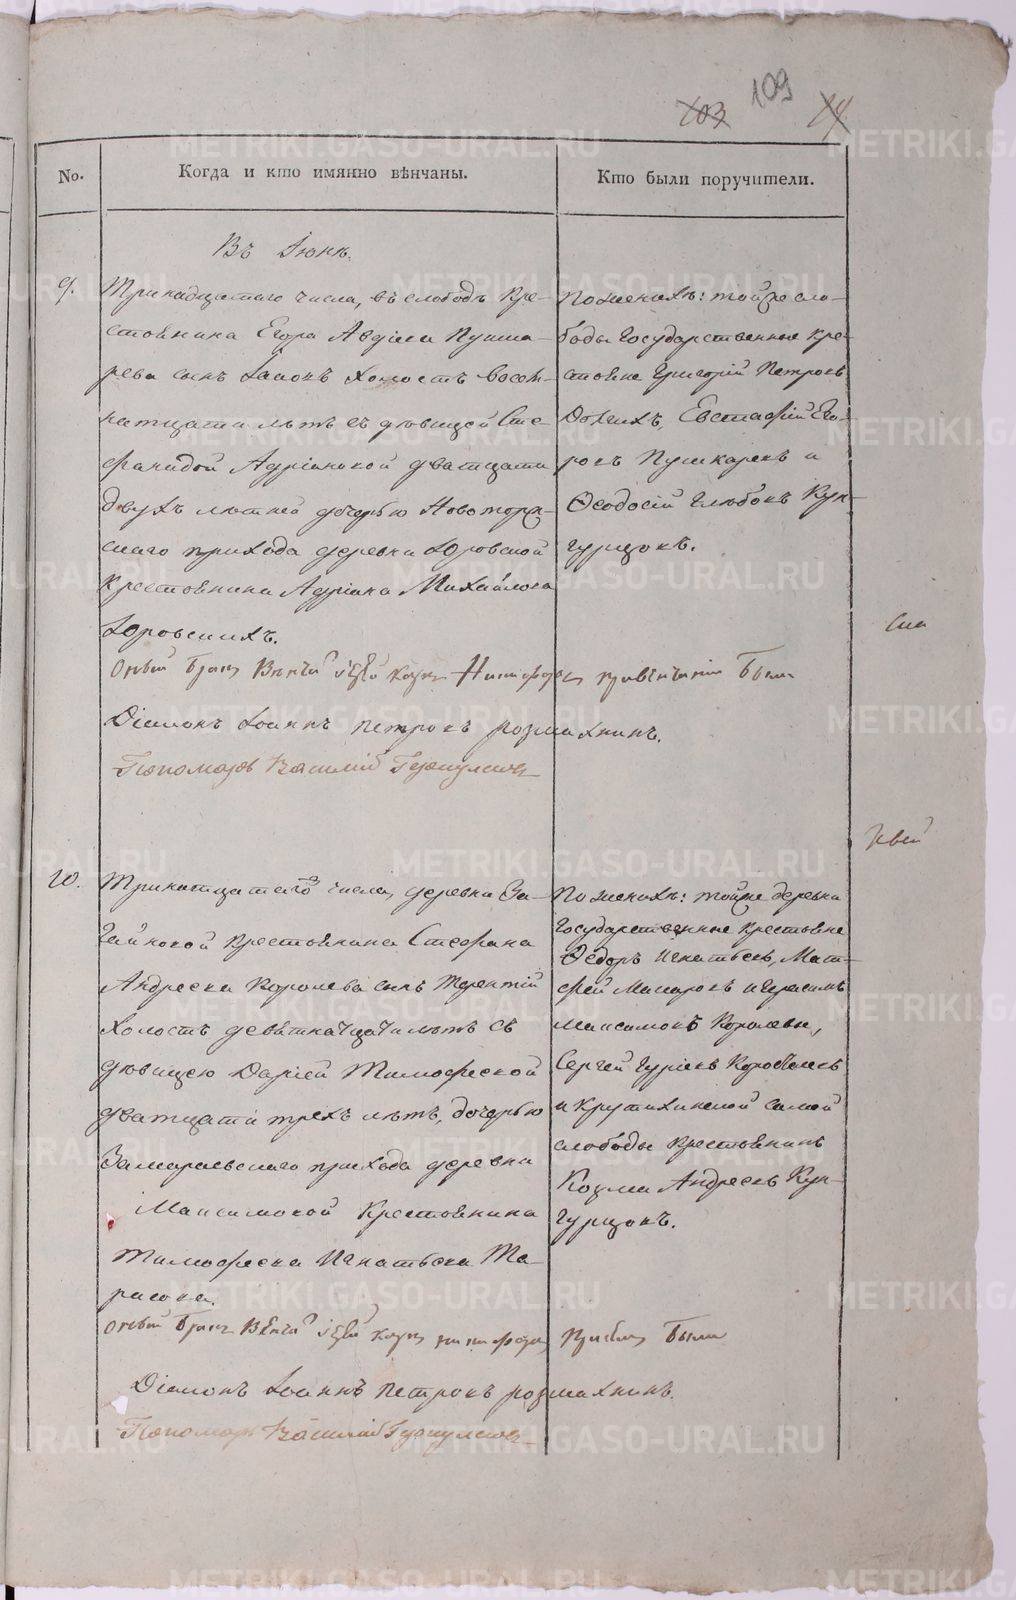 109
103
No.
Когда и кто имянно вѣнчаны.
Кто были поручители.
Въ Іюнѣ.
9.
Тринадцатаго числа, въ слободѣ Кре-
стьянина Егора Авдѣева Пушка-
рева сынъ холостъ восем-
натцати лѣтъ съ дѣвицей Сте-
фанидой Адріановой дватцати
двухъ лѣтней дочерью Новоторж-
скаго прихода деревни Юровской
крестьянина Адріана Михайлова
Юровскихъ.
Оный Бракъ Вѣнчалъ Никифоръ при вѣнчаніи Были
Діаконъ Іоаннъ Петровъ Розмахнинъ.
Пономарь Василій
По женихѣ: тойже сло-
боды Государственные кре-
стьяне Григорій Петровъ
Долгихъ, Евстафій Его-
ровъ Пушкаревъ и
Ѳеодосій Глѣбовъ Кун-
гурцовъ.
10.
Тринатцатаго числа, деревни За-
крестьянина Стефана
Андреева Королева сынъ Терентій
холостъ девятнатцати лѣтъ съ
дѣвицею Даріей Тимофеевой
дватцати трехъ лѣтъ, дочерью
Замараевскаго прихода деревни
Максимовой крестьянина
Тимофеева Игнатьева Та-
расова.
Оный Бракъ Вѣнчалъ Никифоръ при немъ Были
Діаконъ Іоаннъ Петровъ Розмахнинъ.
Пономарь Василій
По женихѣ: тойже деревни
Государственные крестьяне
Ѳедоръ Игнатьевъ, Мат-
фей Макаровъ и Герасимъ
Максимовъ Королевы,
Сергей Гурьевъ
и Крутихинской самой
слободы крестьянинъ
Козма Андреевъ Кун-
гурцовъ.